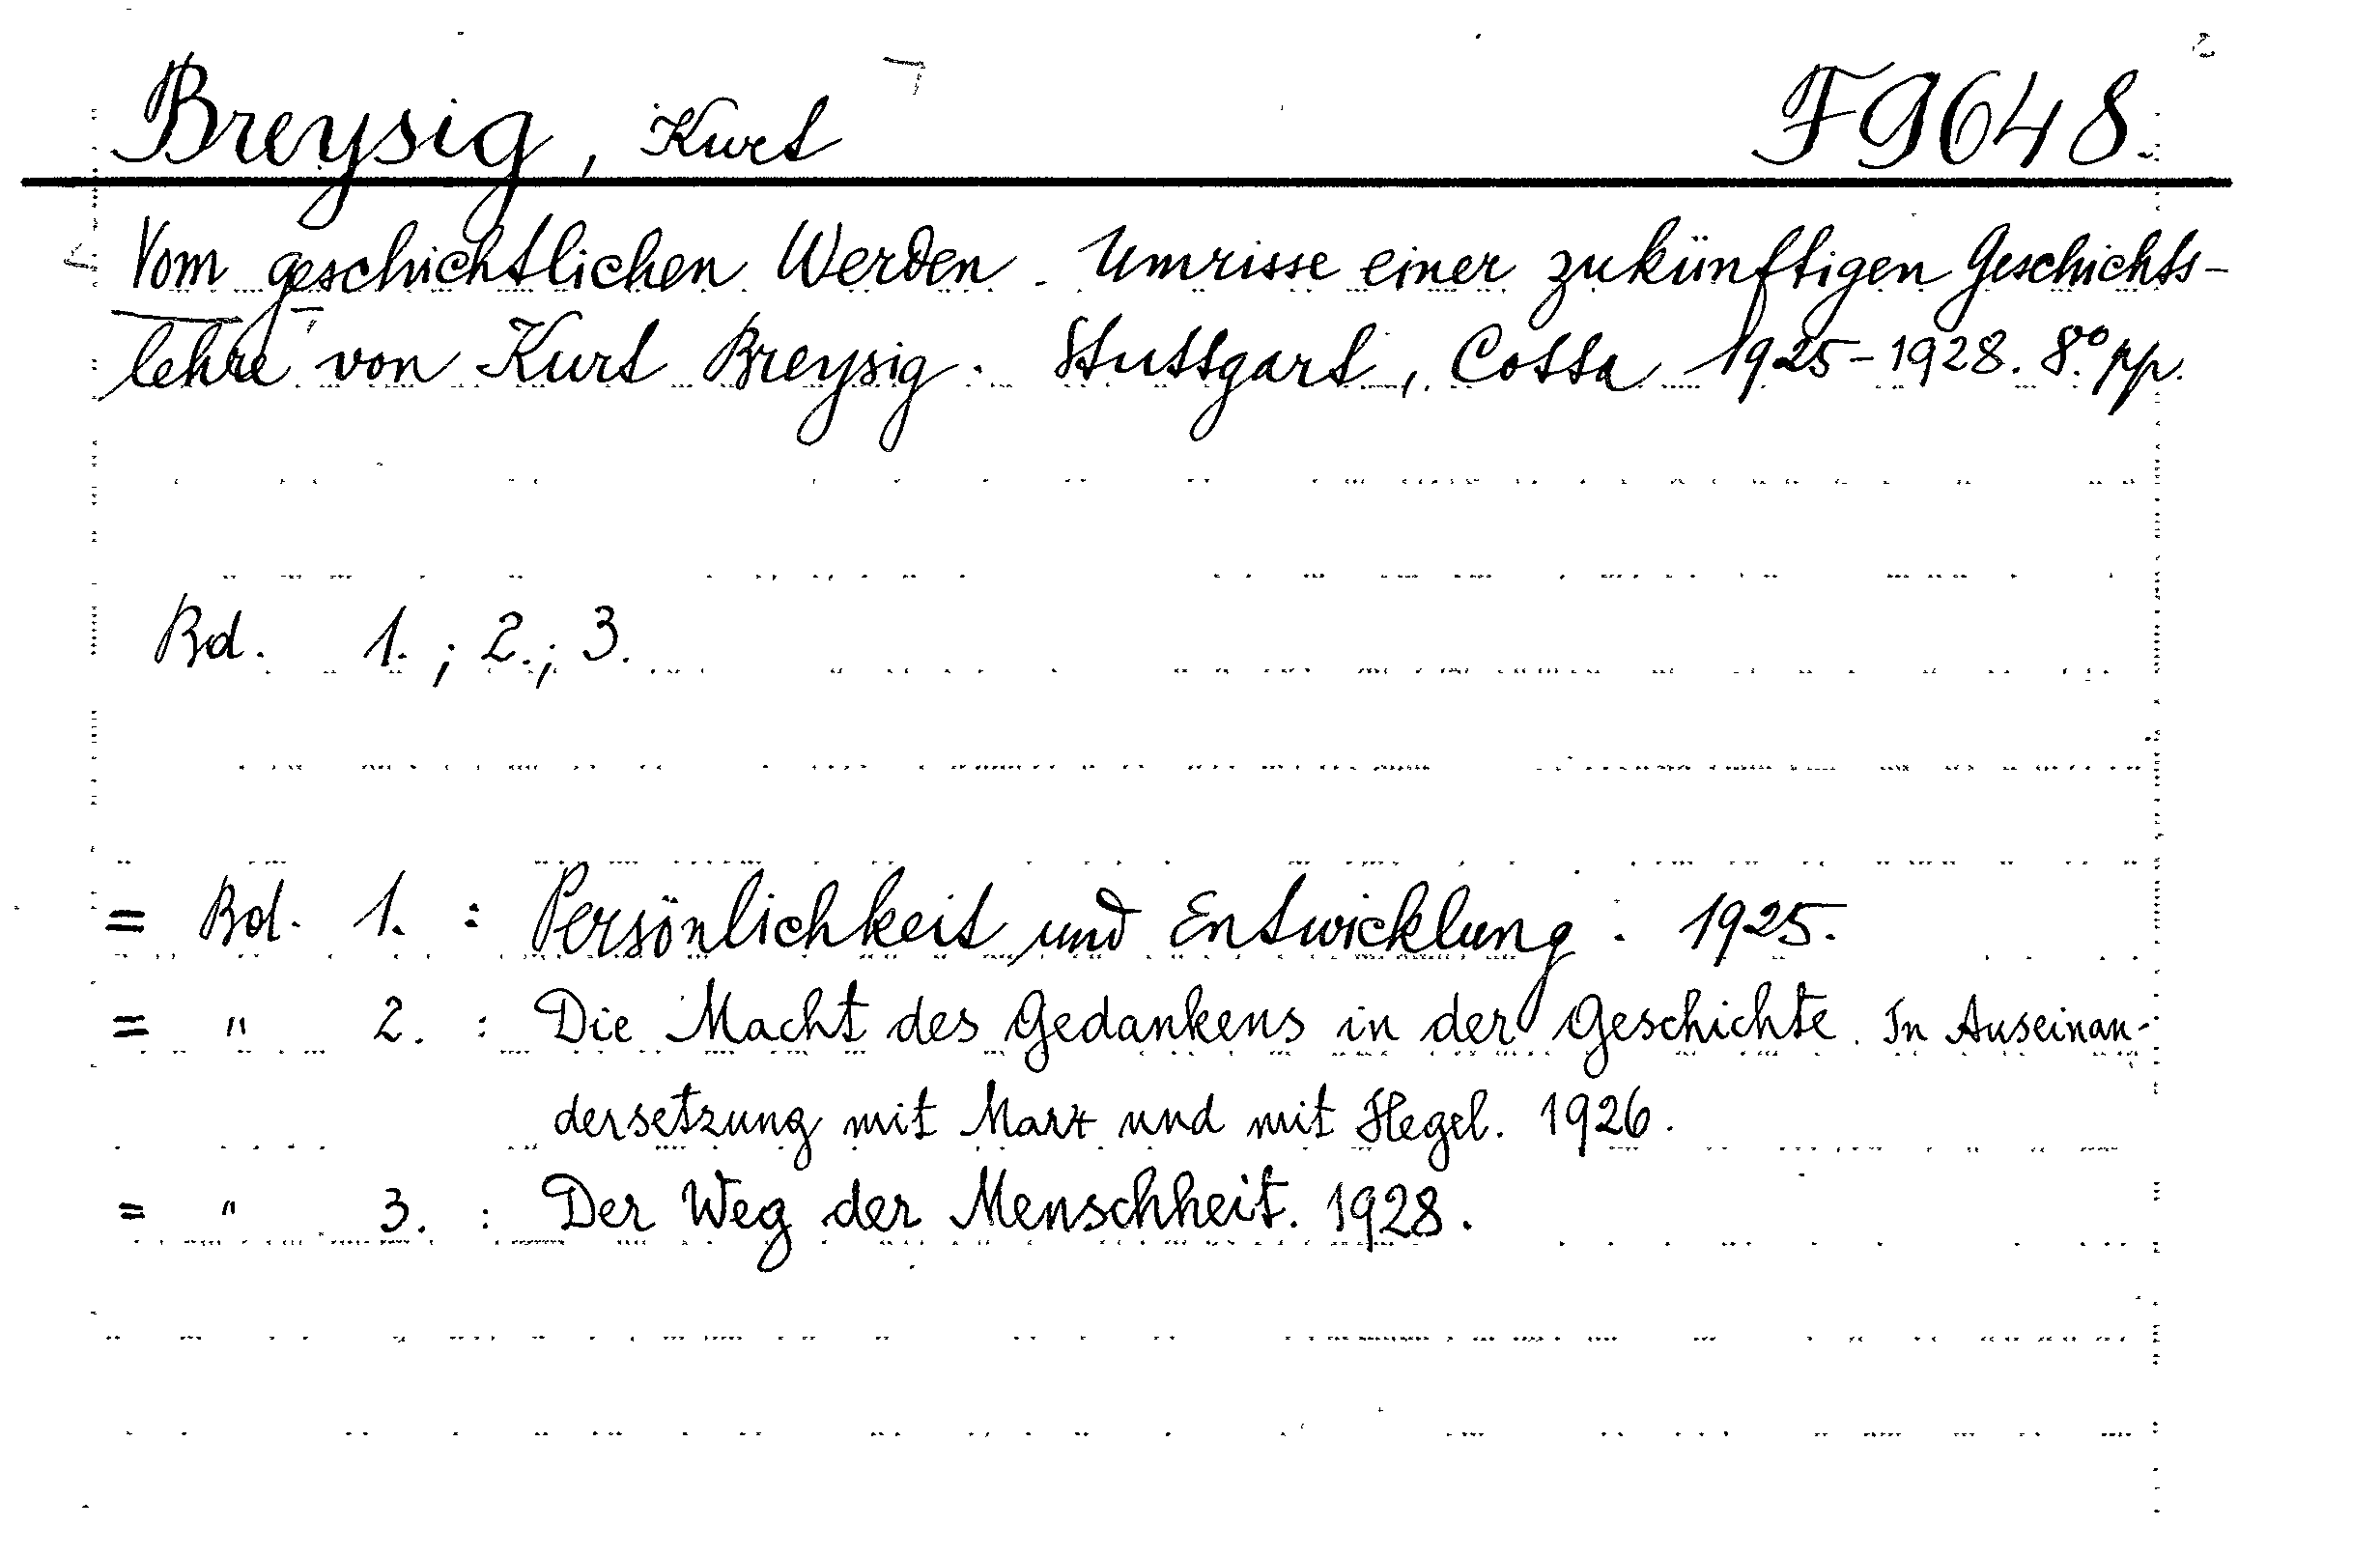 Breysig, Kurt F9648.
Vom geschichtlichen Werden. Umrisse einer zukünftigen Geschichts-
lehre von Kurt Breysig. Stuttgart, Cotta 1925-1928. 8.° pp.
Bd. 1.; 2.; 3.
= Bd. 1. : Persönlichkeit und Entwicklung. 1925.
= " 2. : Die Macht des Gedankens in der Geschichte. In Auseinan-
dersetzung mit Marx und mit Hegel. 1926.
= " 3. : Der Weg der Menschheit. 1928.